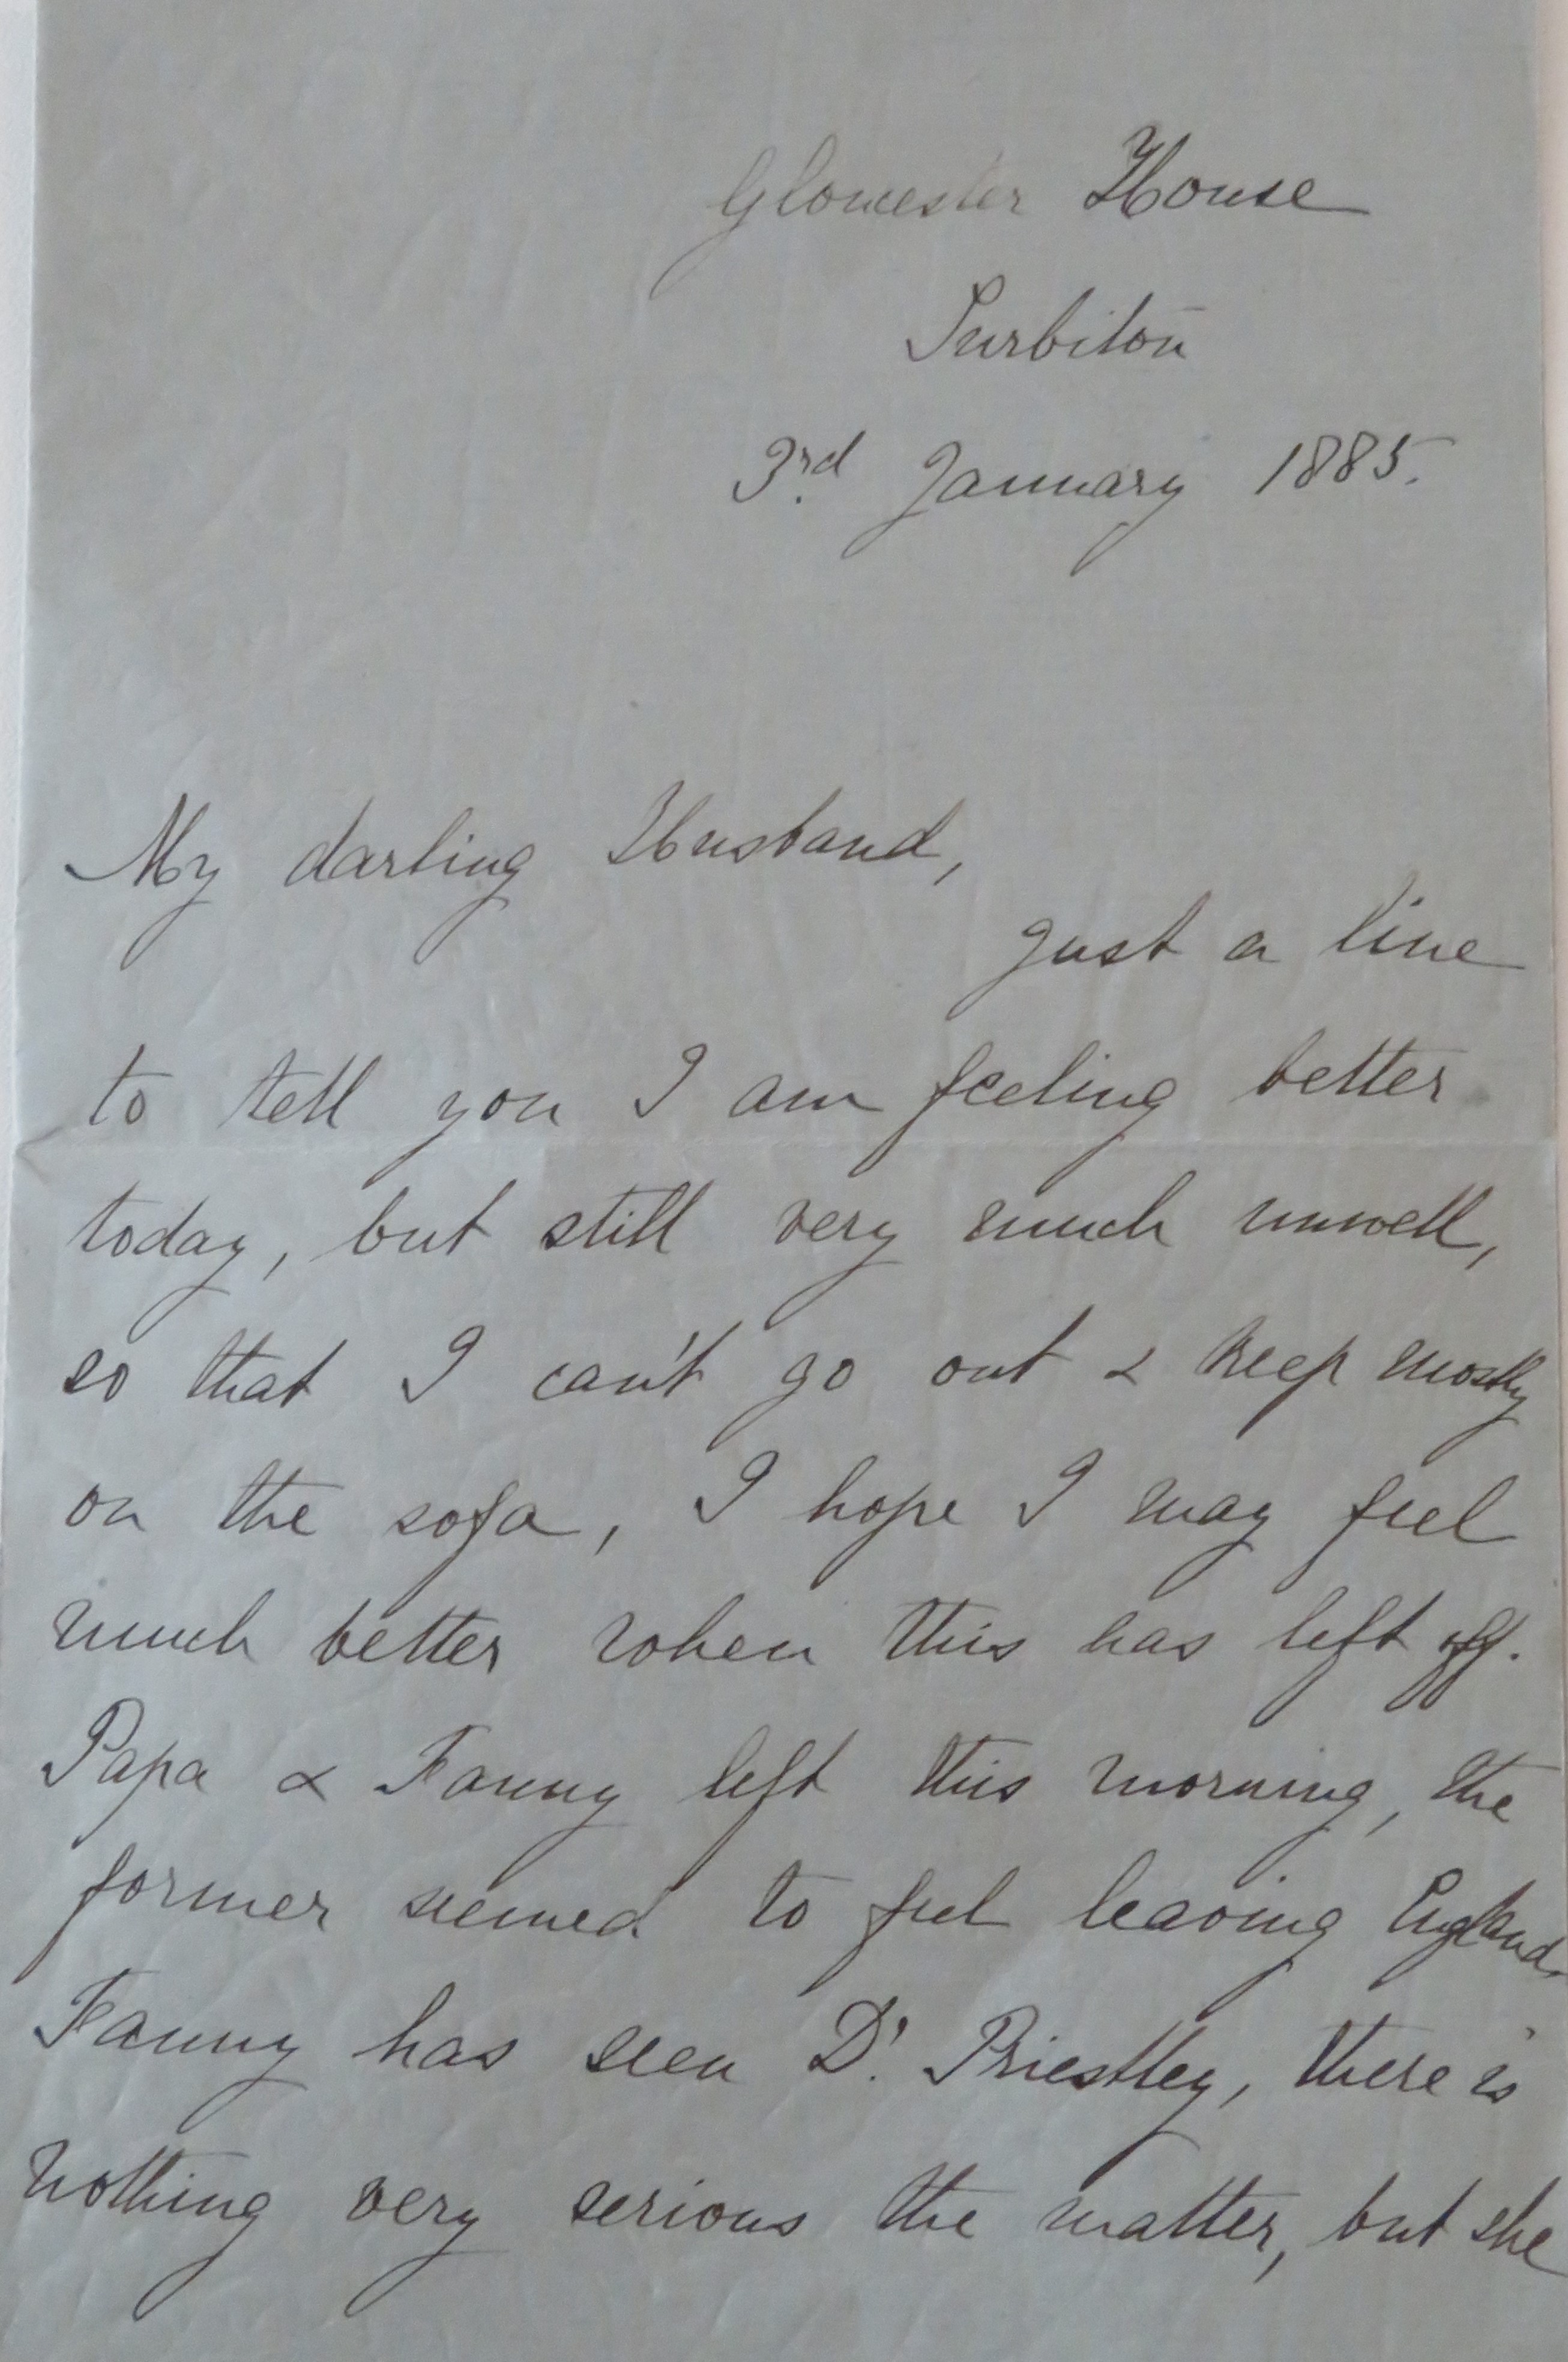 Gloucester House
Surbiton
3rd January 1885.
My darling Husband,
Just a line
to tell you I am feeling better
today, but still very much unwell,
so that I can't go out & keep mostly
on the sofa, I hope I may feel
much better when this has left off.
Papa & Fanny left this morning, the
former seemed to feel leaving England.
Fanny has seen Dr. Priestley, there is
nothing very serious the matter, but she